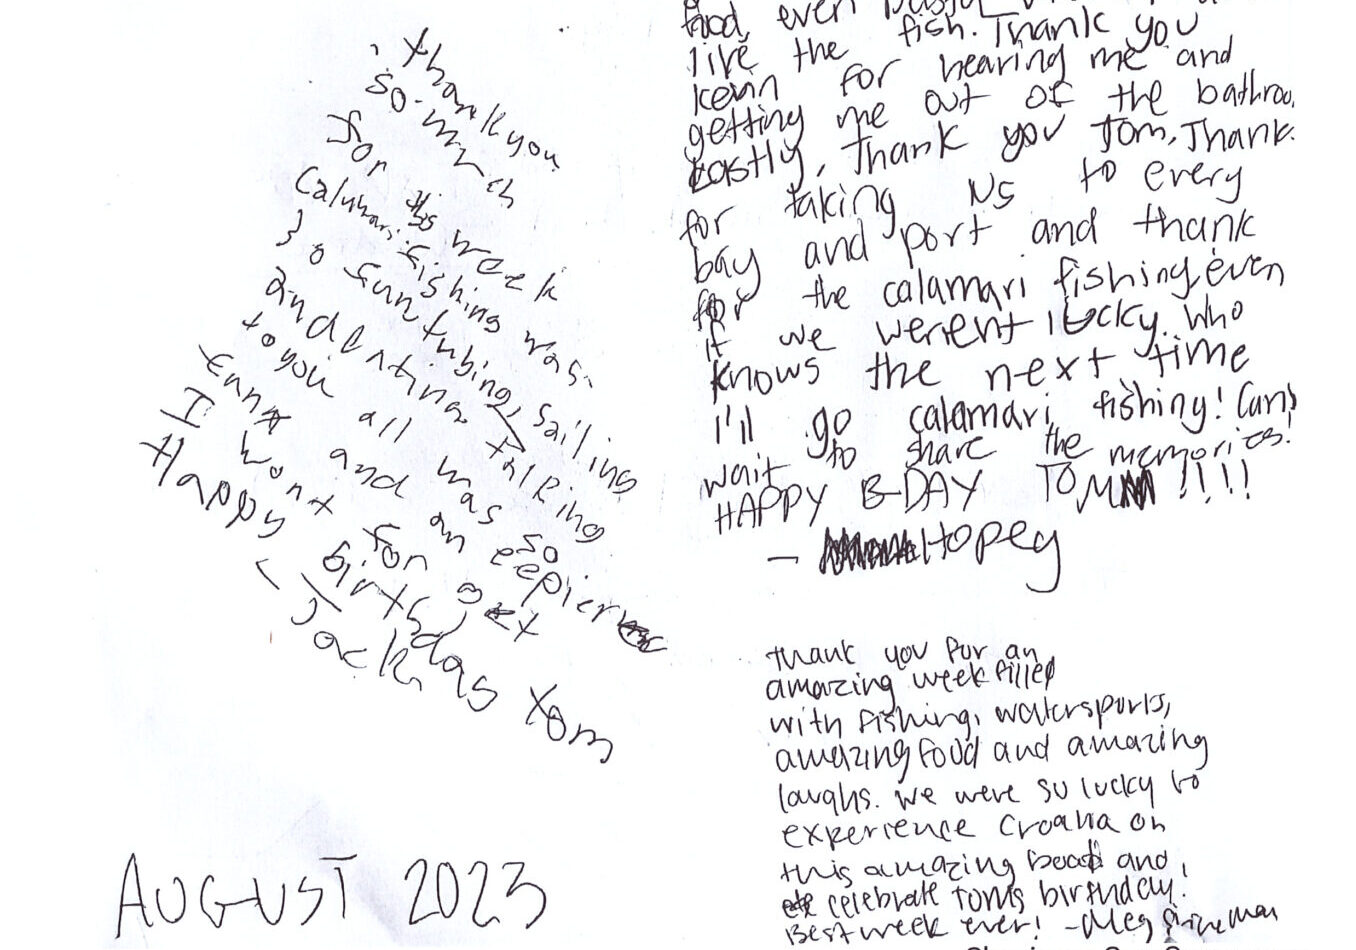 Thank you
so much
for this week
Calamari fishing was
so fun tubing, sailing
and eating Talking
to you all was so
Funt and an eepier
I wont for ext
Happy birtsday Tom
- Jack
food, even
like the fish. Thank you
Kevin for hearing me and
getting me out of the bathroo
Lastly, Thank you Tom, Thank
for taking us to every
bay and port and thank
for the calamari fishing, even
if we werent lucky. Who
knows the next time
I'll go calamari fishing! Cant
wait to share the memories!
HAPPY B-DAY TOM !!!!
- Hopey
Thank you for an
amazing week filled
with fishing, watersports,
amazing food and amazing
laughs. We were so lucky to
experience Croatia on
this amazing boat and
celebrate Toms birthday.
Best week ever! - Meg
AUGUST 2023